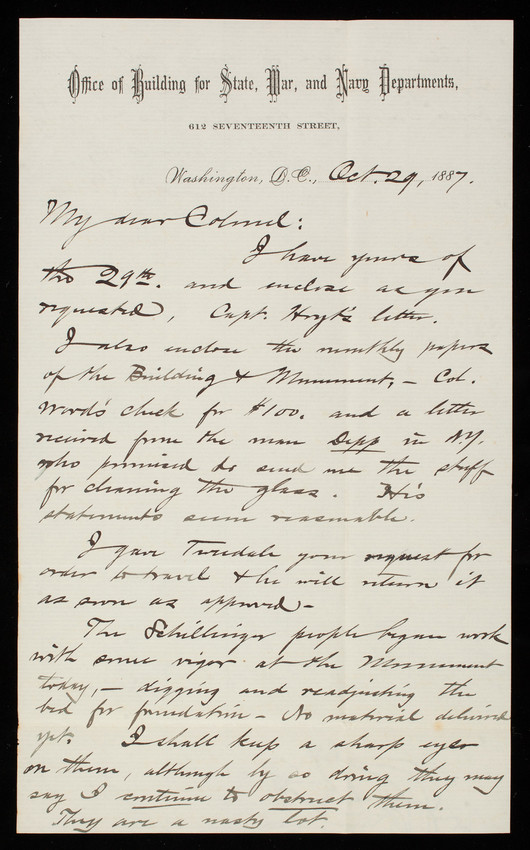 Office of Building for State, War, and Navy Departments,
612 SEVENTEENTH STREET,
Washington, D.C., Oct. 29, 1887.
My dear Colonel:
I have yours of
the 29th. and enclose as you
requested, Capt. Hoyt's letter.
I also enclose the monthly papers
of the Building & Monument, - Col.
Wood's check for $100. and a letter
received from the man Depp in N.Y.
who promised to send me the stuff
for cleaning the glass. His
statements seem reasonable.
I gave Tweedale your request for
order to travel & he will return it
as soon as approved -
The Schillinger people began work
with some vigor at the Monument
today, - digging and readjusting the
bed for foundation - No material delivered
yet. I shall keep a sharp eye
on them, although by so doing they may
say I continue to obstruct them.
They are a nasty lot.